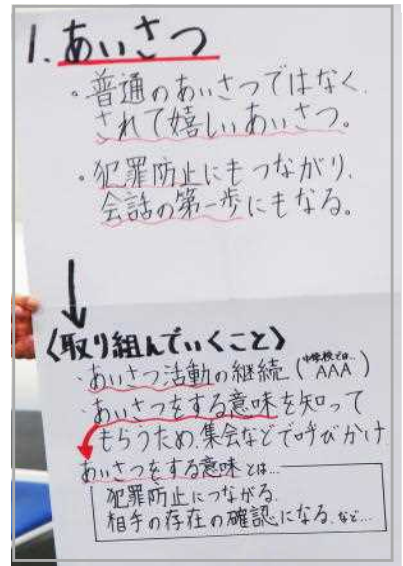 1. あいさつ
・普通のあいさつではなく、
されて嬉しいあいさつ。
・犯罪防止にもつながり、
会話の第一歩にもなる。
〈取り組んでいくこと〉
・あいさつ活動の継続(中学校では… AAA)
・あいさつをする意味を知って
もらうため集会などで呼びかけ
あいさつをする意味とは…
犯罪防止につながる、
相手の存在の確認になる、など…